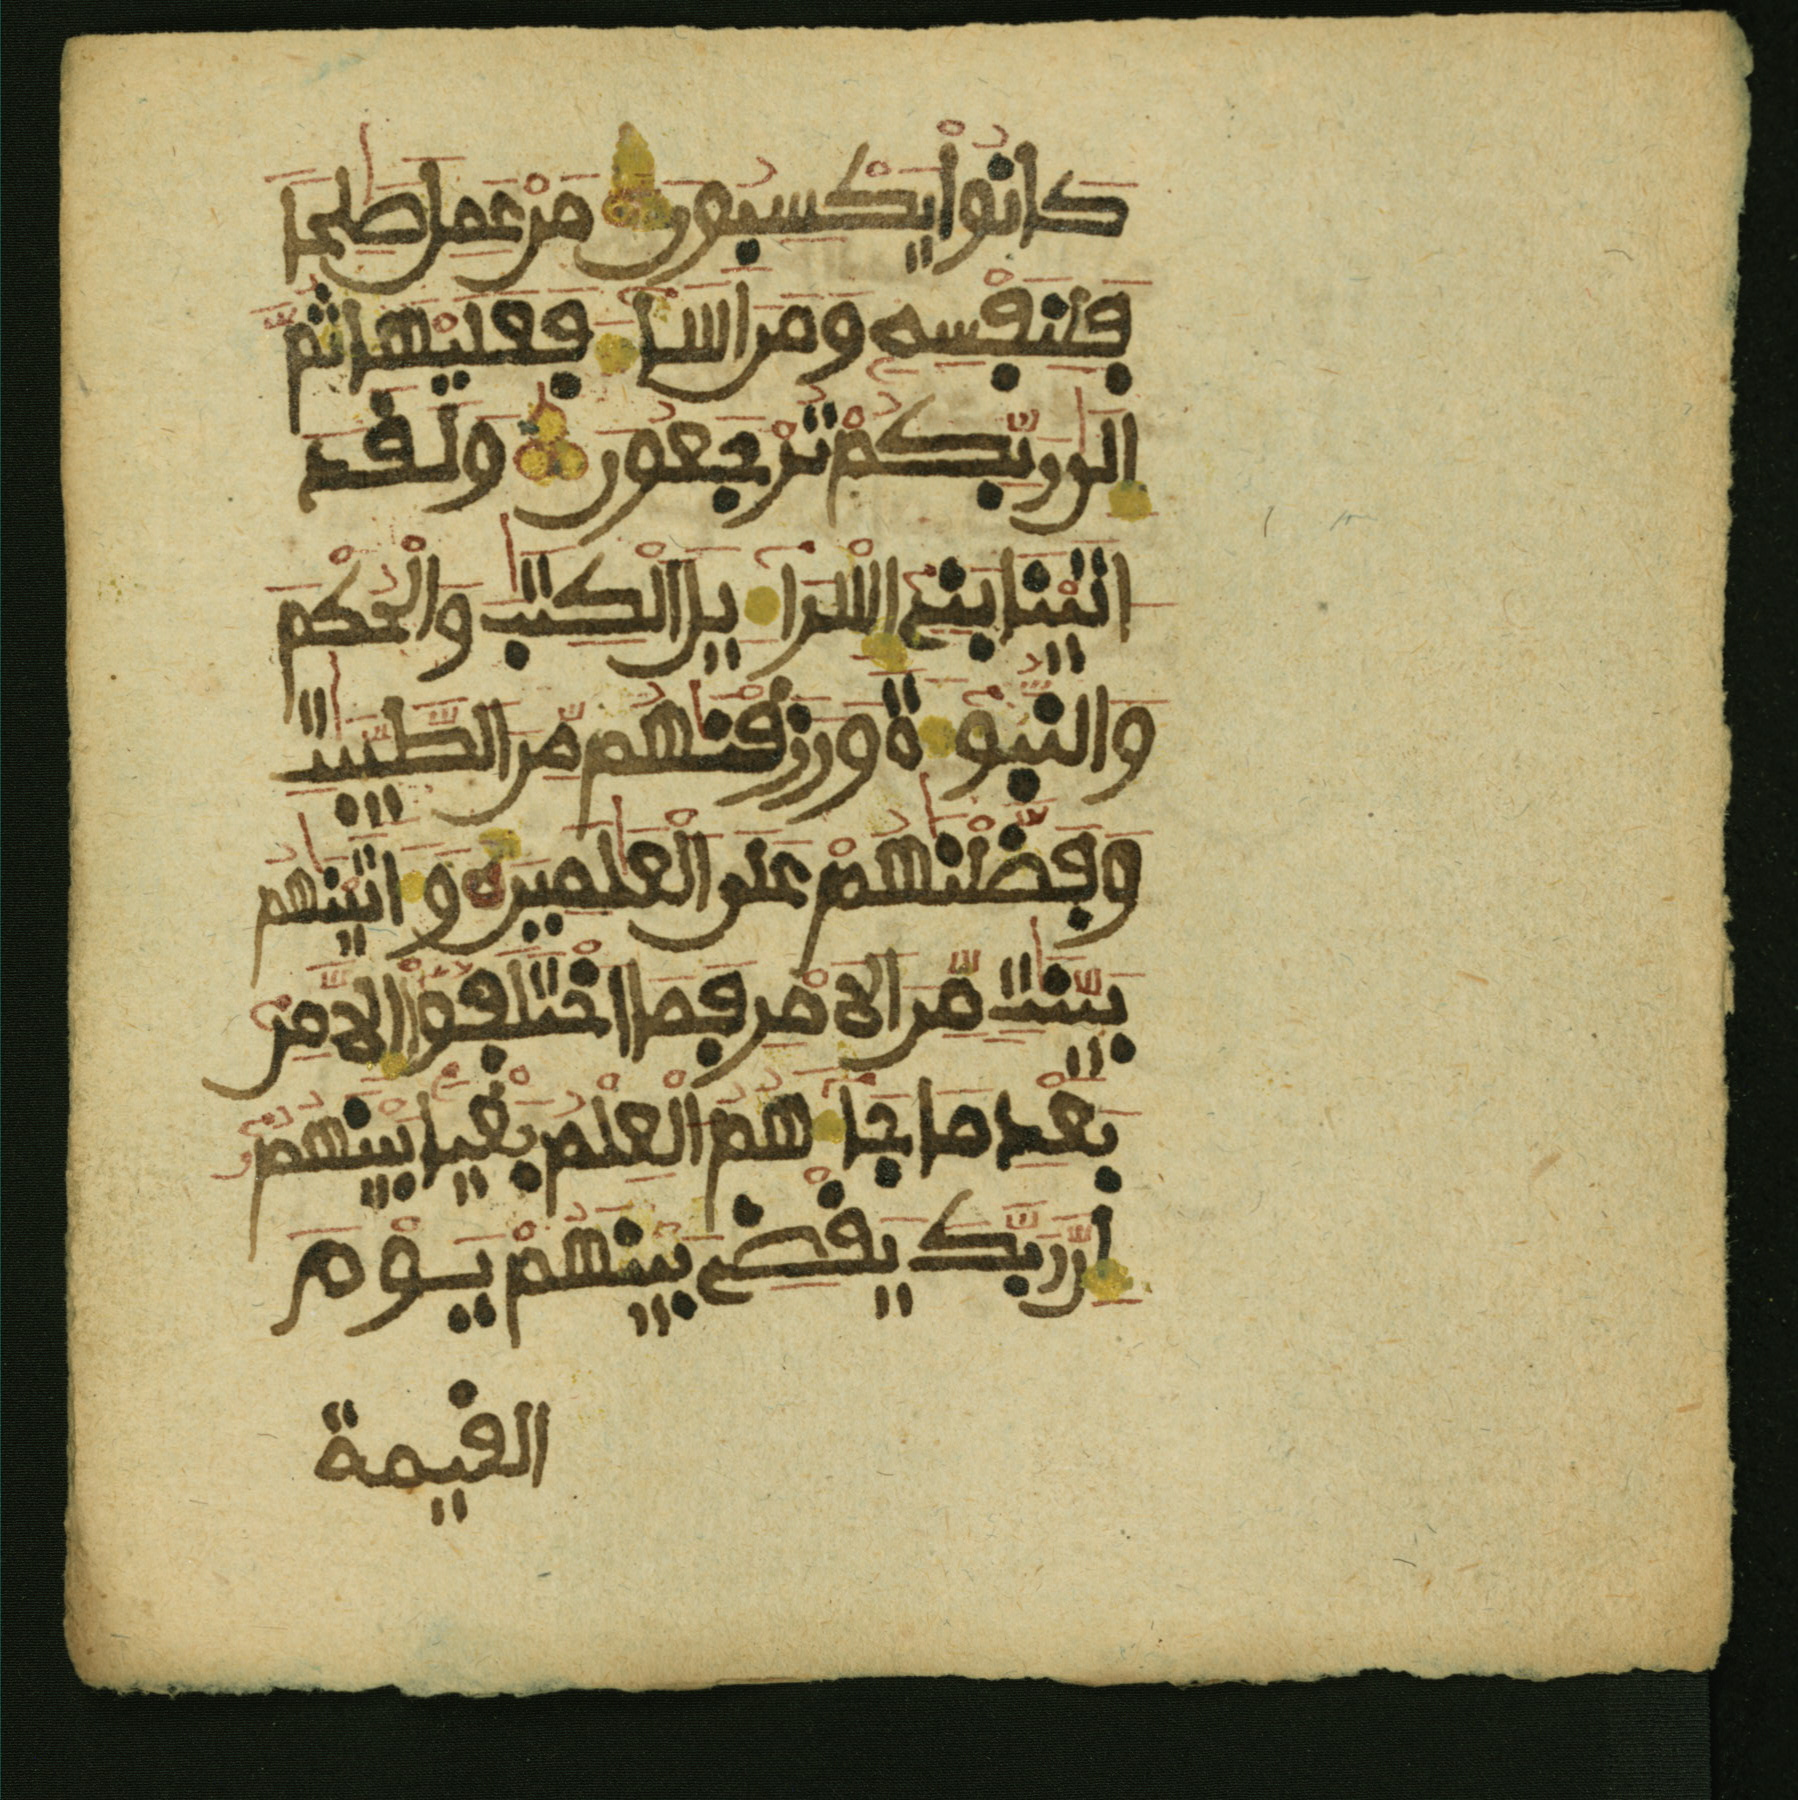 كانوا يكسبون من عمل صلحا
فلنفسه ومن اساء فعليها ثم
الى ربكم ترجعون ولقد
اتينا بنى اسراءيل الكتب والحكم
والنبوءة ورزقنهم من الطيبت
وفضلنهم على العلمين واتينهم
بينت من الامر فما اختلفوا الا من
بعد ما جاءهم العلم بغيا بينهم
ان ربك يقضى بينهم يوم
القيمة